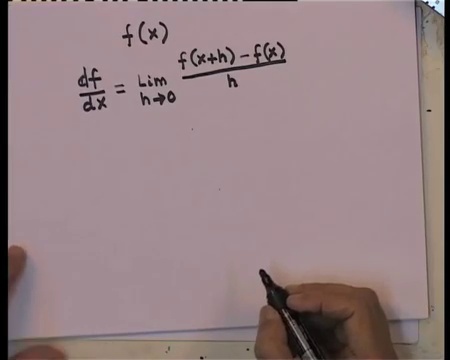 f(x)
df/dx = Lim h→0 f(x+h) - f(x) / h